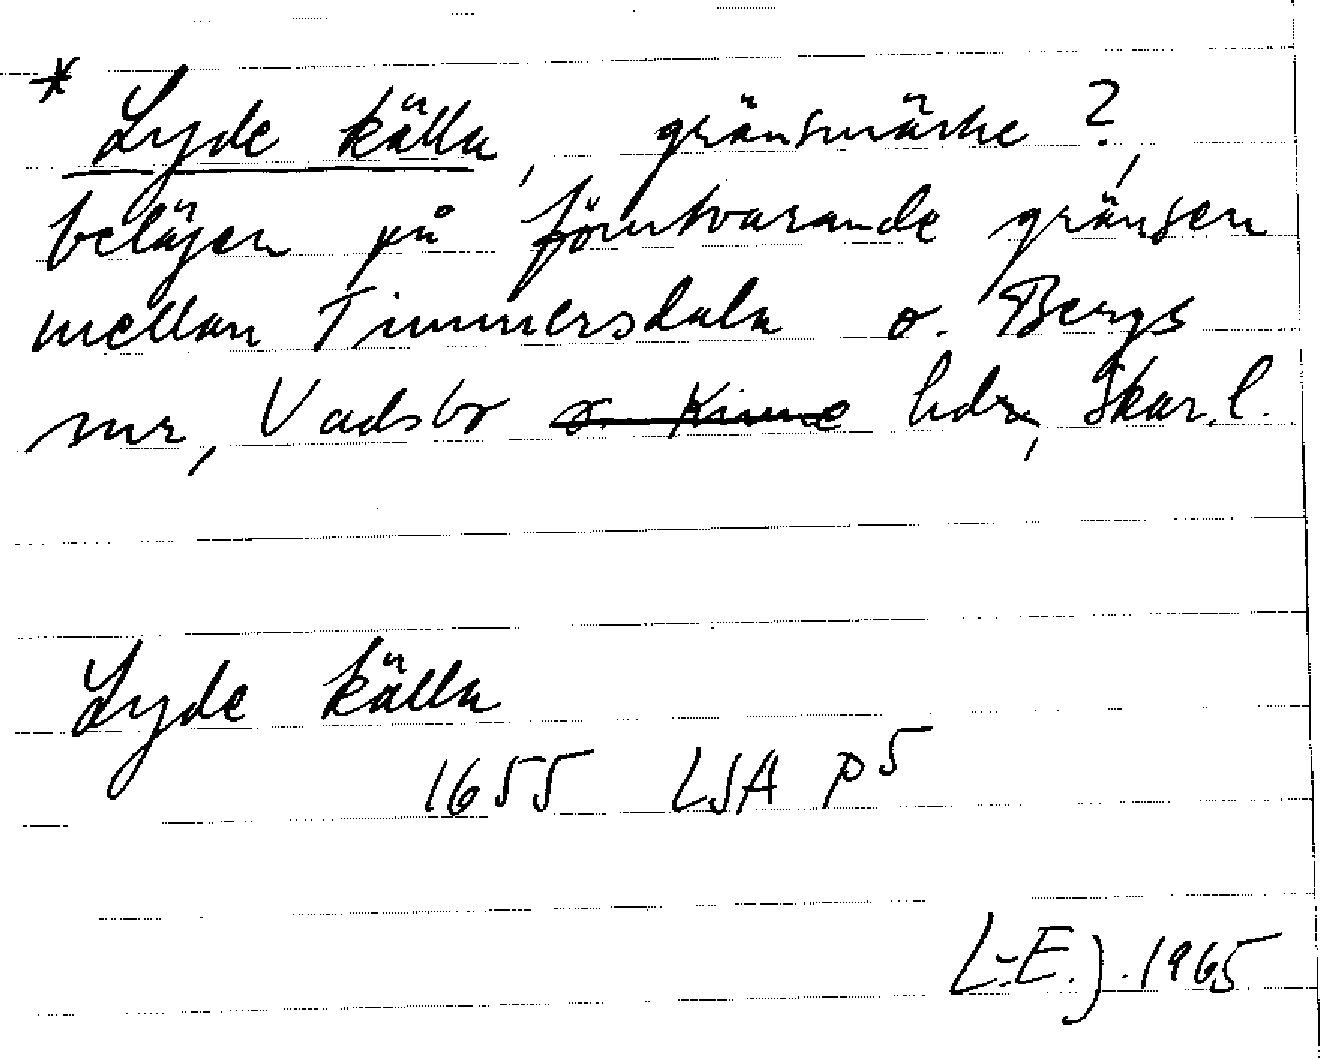 * Lyde källa, gränsmärke?,
belägen på förutvarande gränsen
mellan Timmersdala o. Bergs
snr, Vadsbo o. Kinne hdr, Skar.l.
Lyde källa
1655 LSA P5
L-E.J. 1965